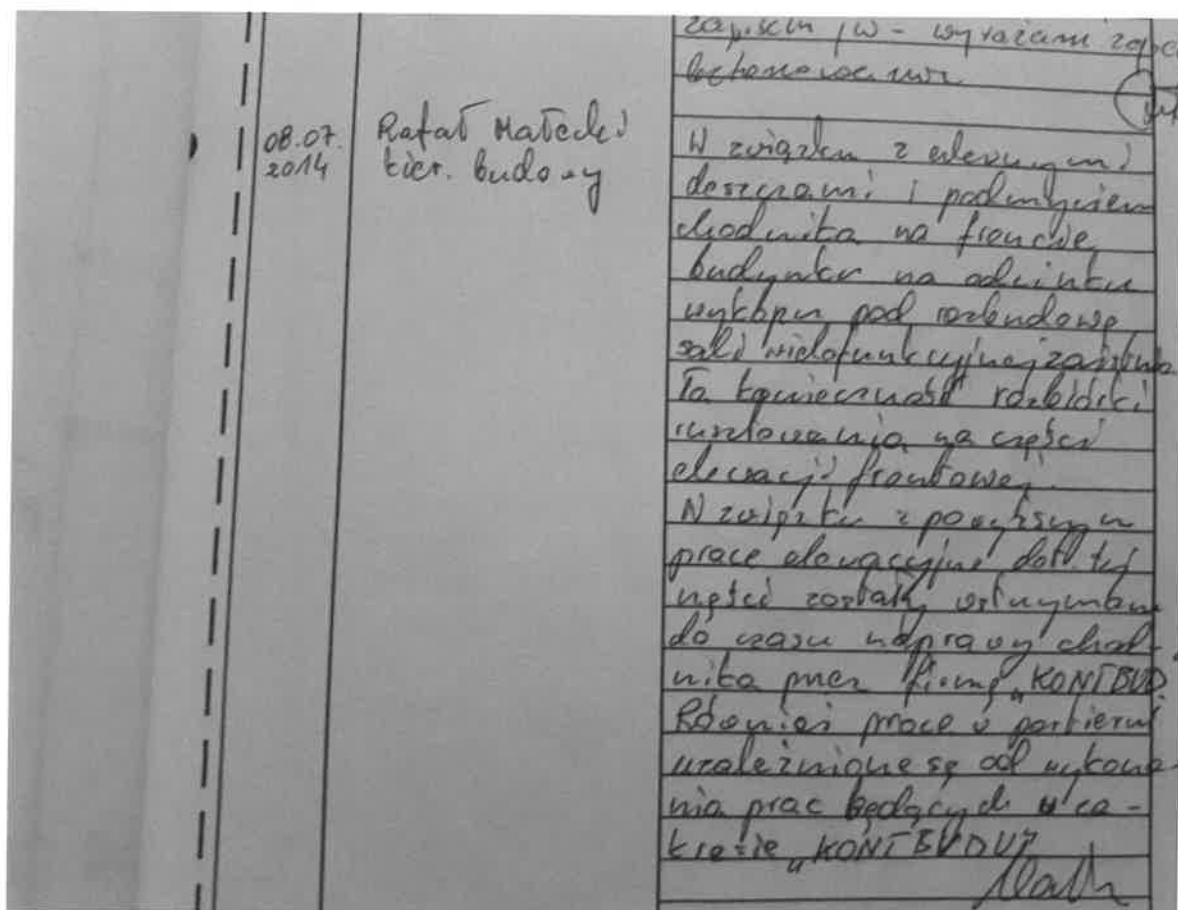 zapisem jw - wyrażam
08.07.
2014
Rafał Małecki
kier. budowy
W związku z ulewnymi
deszczami i podmyciem
chodnika na froncie
budynku na odcinku
wykopu pod rozbudowę
sali wielofunkcyjnej zaistnia
ła konieczność rozbiórki
rusztowania na części
elewacji frontowej.
W związku z powyższym
prace elewacyjne dot. tej
części zostały wstrzymane
do czasu naprawy chod-
nika przez firmę „KONTBUD.
Również prace w parterze
uzależnione są od wykona-
nia prac będących w za-
kresie „KONTBUDU"